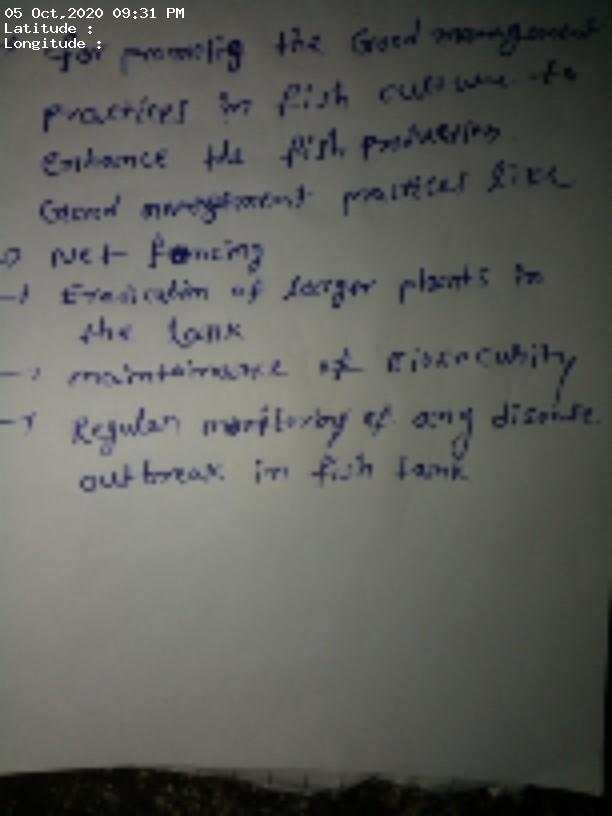 05 Oct,2020 09:31 PM
Latitude :
Longitude :
For promotig the Good management
practices in fish culture to
enhance the fish production
Good management practices like
→ Net fencing
→ Eradication of larger plants in
the tank
→ maintainance of Biosecurity
→ Regular monitoring of any disease
outbreak in fish tank